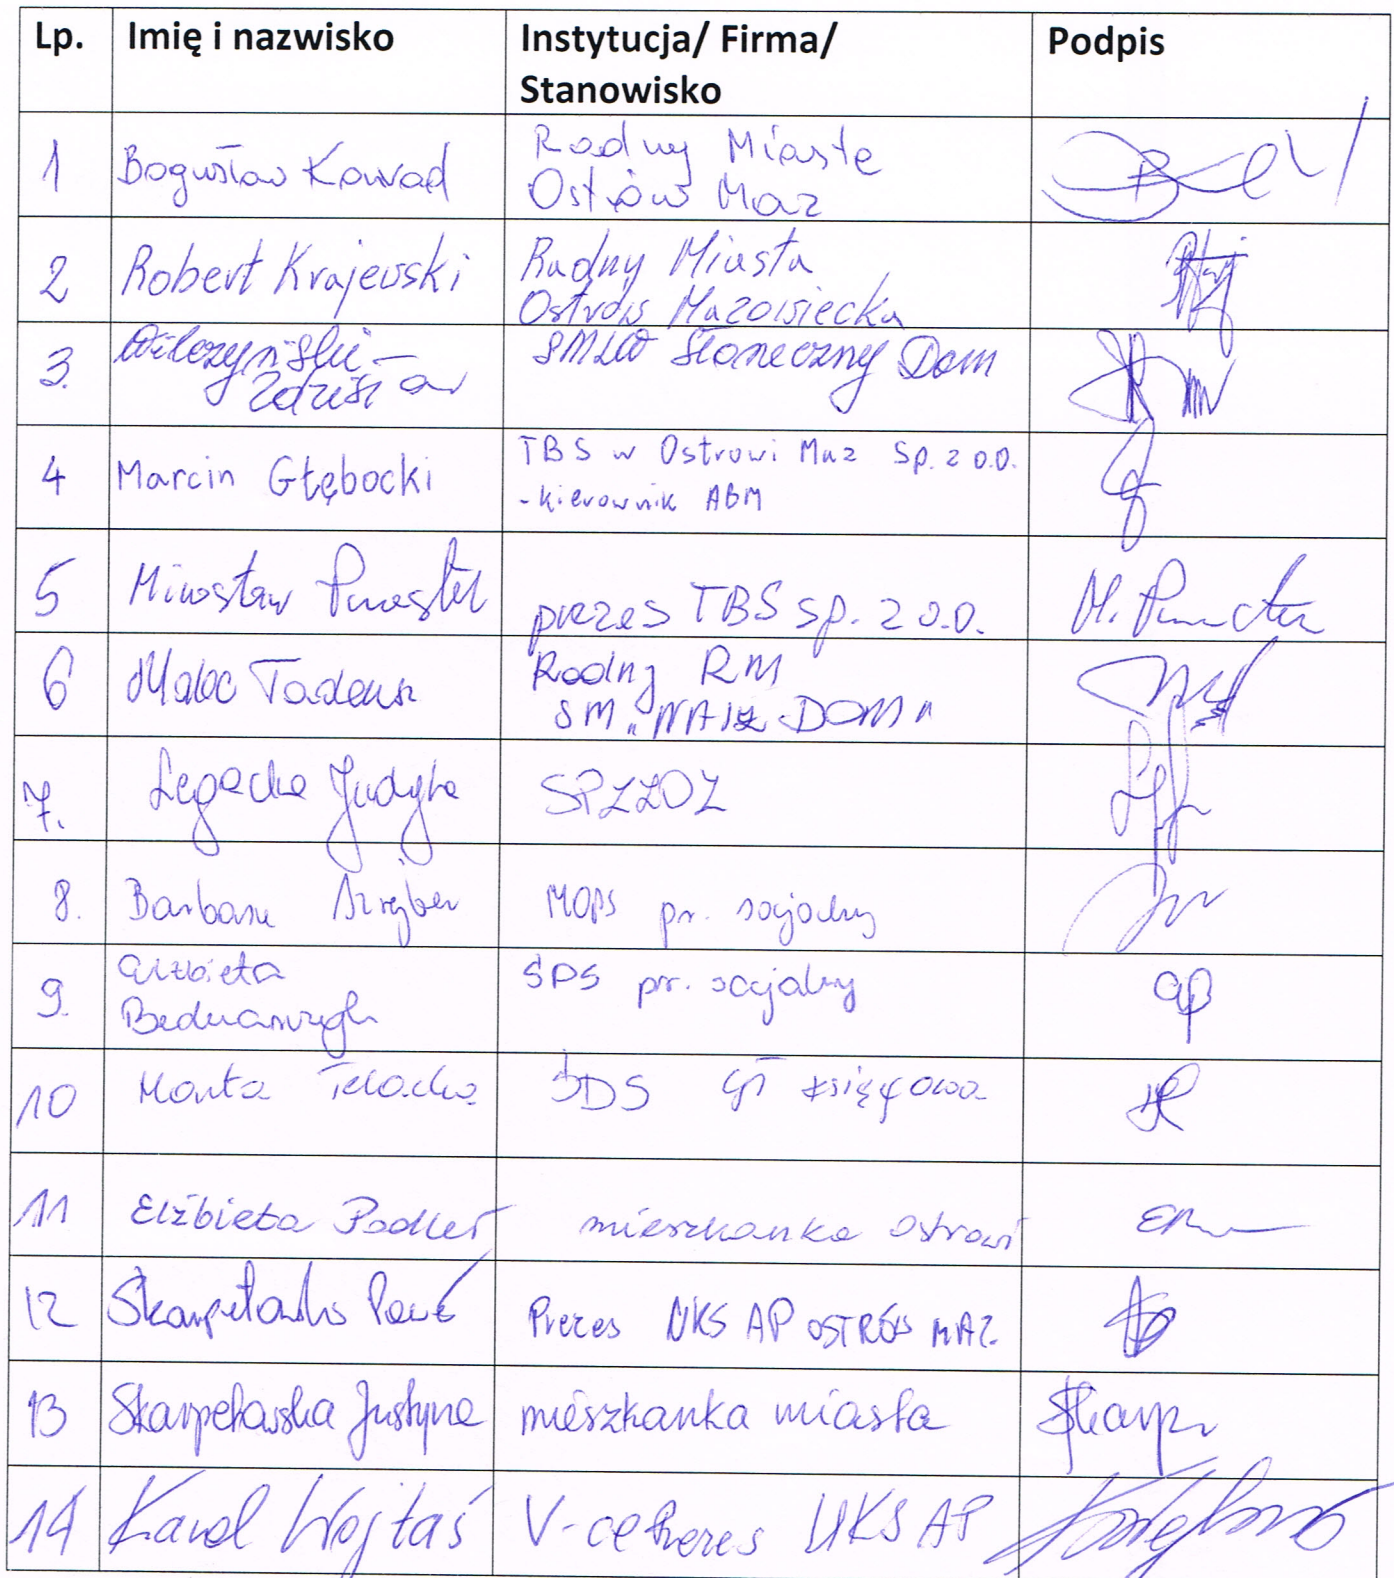 Lp. Imię i nazwisko Instytucja/ Firma/ Podpis
Stanowisko
1 Bogusław Konrad Radny Miasta
Ostrów Maz
2 Robert Krajewski Radny Miasta
Ostrów Mazowiecka
3. Wilczyński - SMLW Słoneczny Dom
Zdzisław
4 Marcin Głębocki TBS w Ostrowi Maz Sp. z o.o.
- kierownik ABM
5 Mirosław prezes TBS sp. z o.o. M.
6 Tadeusz Radny RM
SM „NASZ DOM"
7. Legacka Judyta SPZZOZ
8. Barbara MOPS pr. socjalny
9. Elżbieta ŚDS pr. socjalny
Bednarczyk
10 Marta ŚDS gł księgowa
11 Elżbieta Podleś mieszkanka Ostrowi
12 Skarpetowski Paweł Prezes UKS AP OSTRÓW MAZ.
13 Skarpetowska Justyna mieszkanka miasta
14 Karol Wojtaś V-ce Prezes UKS AP